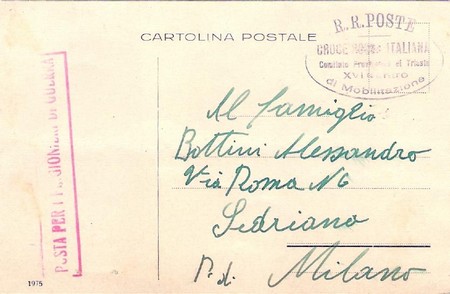 R.R. POSTE
CARTOLINA POSTALE
CROCE ROSSA ITALIANA
Comitato Provinciale di Trieste
XVI Centro
di Mobilitazione
POSTA PER I PRIGIONIERI DI GUERRA
Al famiglio
Bottini Alessandro
Via Roma N 6
Sedriano
P. di Milano
1975